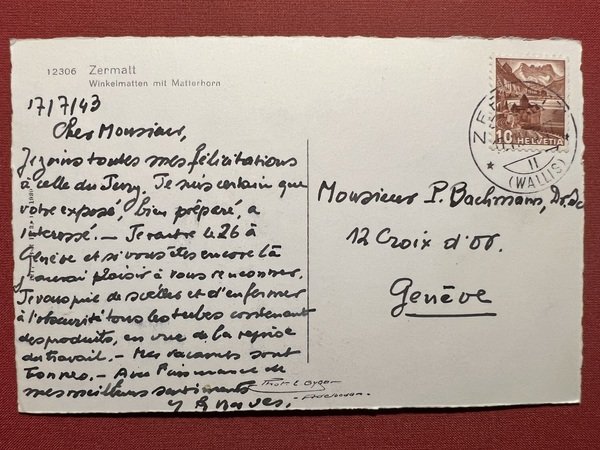 12306 Zermatt
Winkelmatten mit Matterhorn
17/7/43
Cher Monsieur,
Je joins toutes mes félicitations
à celle du Jury. Je suis certain que
votre exposé, bien préparé, a
intéressé. — Je rentre le 26 à
Genève et si vous êtes encore là
j'aurai plaisir à vous rencontrer.
Je vous prie de sceller et d'enfermer
à l'obscurité tous les tubes contenant
des produits, en vue de la reprise
du travail. — Mes vacances sont
bonnes. — Avec l'assurance de
mes meilleurs sentiments
Monsieur P. Bachmann, Dr.
12 Croix d'or.
Genève
10 HELVETIA
ZE
II
(WALLIS)
Gyger
Adelboden